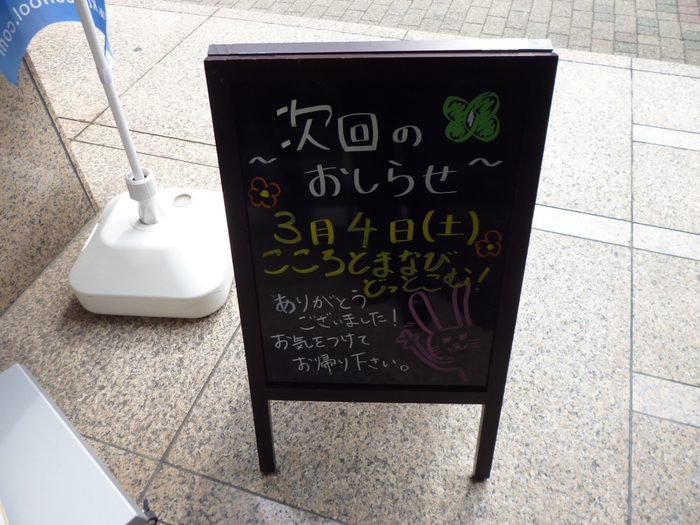 chool.com
次回の
～おしらせ～
3月4日(土)
こころとまなび
どっとこむ!
ありがとう
ございました!
お気をつけて
お帰り下さい。